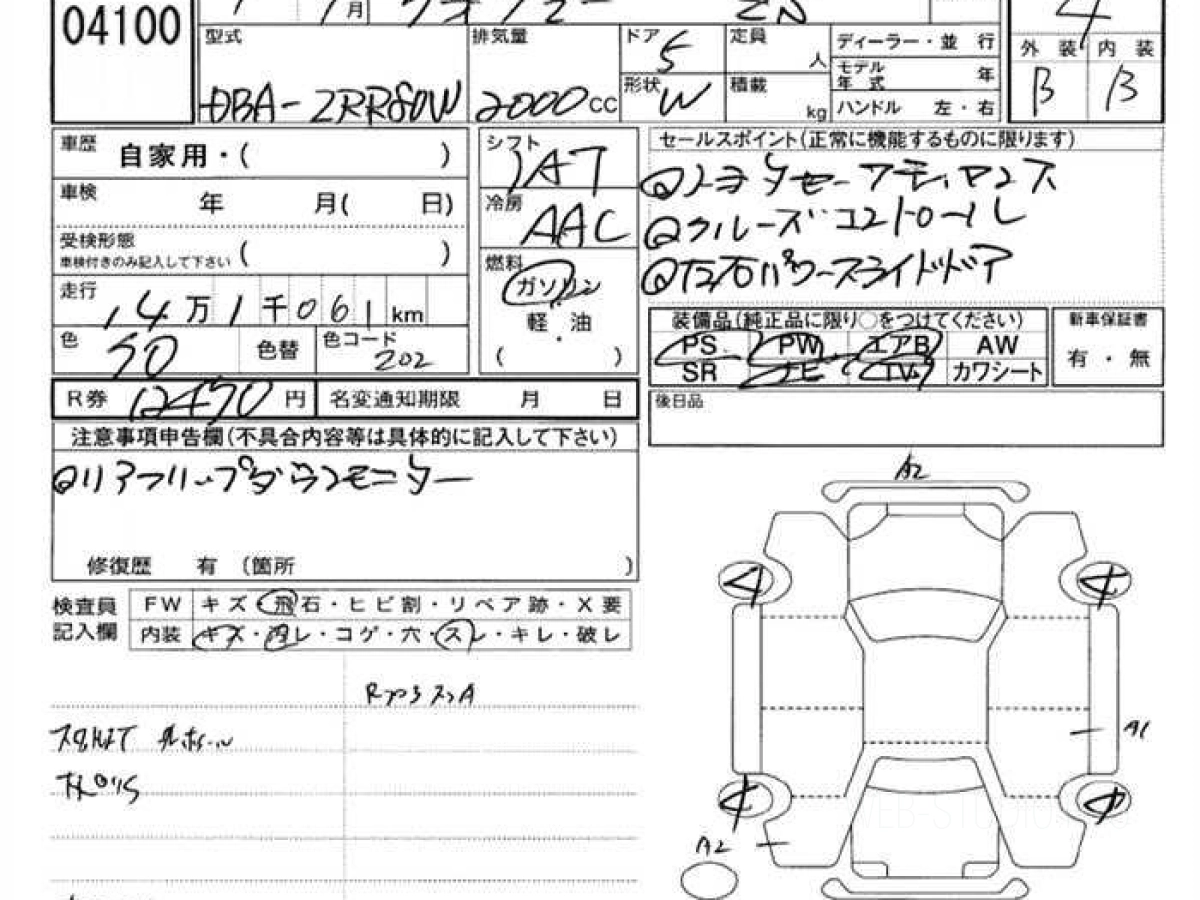 04100
月
ヴォクシー ZS
4
型式 DBA-ZRR80W
排気量 2000 CC
ドア 5
形状 W
定員 人
積載 kg
ディーラー・並 行
モデル年式 年
ハンドル 左・右
外 装 B
内 装 B
車歴 自家用・( )
車検 年 月( 日)
受検形態 ( )
車検付きのみ記入して下さい
走行 14万1千061km
色 クロ
色替
色コード 202
シフト IAT
冷房 AAC
燃料 ガソリン
軽・油
( )
セールスポイント(正常に機能するものに限ります)
◎トヨタセーフティセンス
◎クルーズコントロール
◎左右パワースライドドア
装備品(純正品に限り○をつけてください)
PS PW エアB AW
SR ナビ TV カワシート
新車保証書
有・無
R券 12470円
名変通知期限 月 日
後日品
注意事項申告欄(不具合内容等は具体的に記入して下さい)
◎リアフリップダウンモニター
修復歴 有 〔箇所 〕
検査員記入欄
FW キズ・飛石・ヒビ割・リペア跡・X要
内装 キズ・汚レ・コゲ・穴・スレ・キレ・破レ
A2
A1
A2